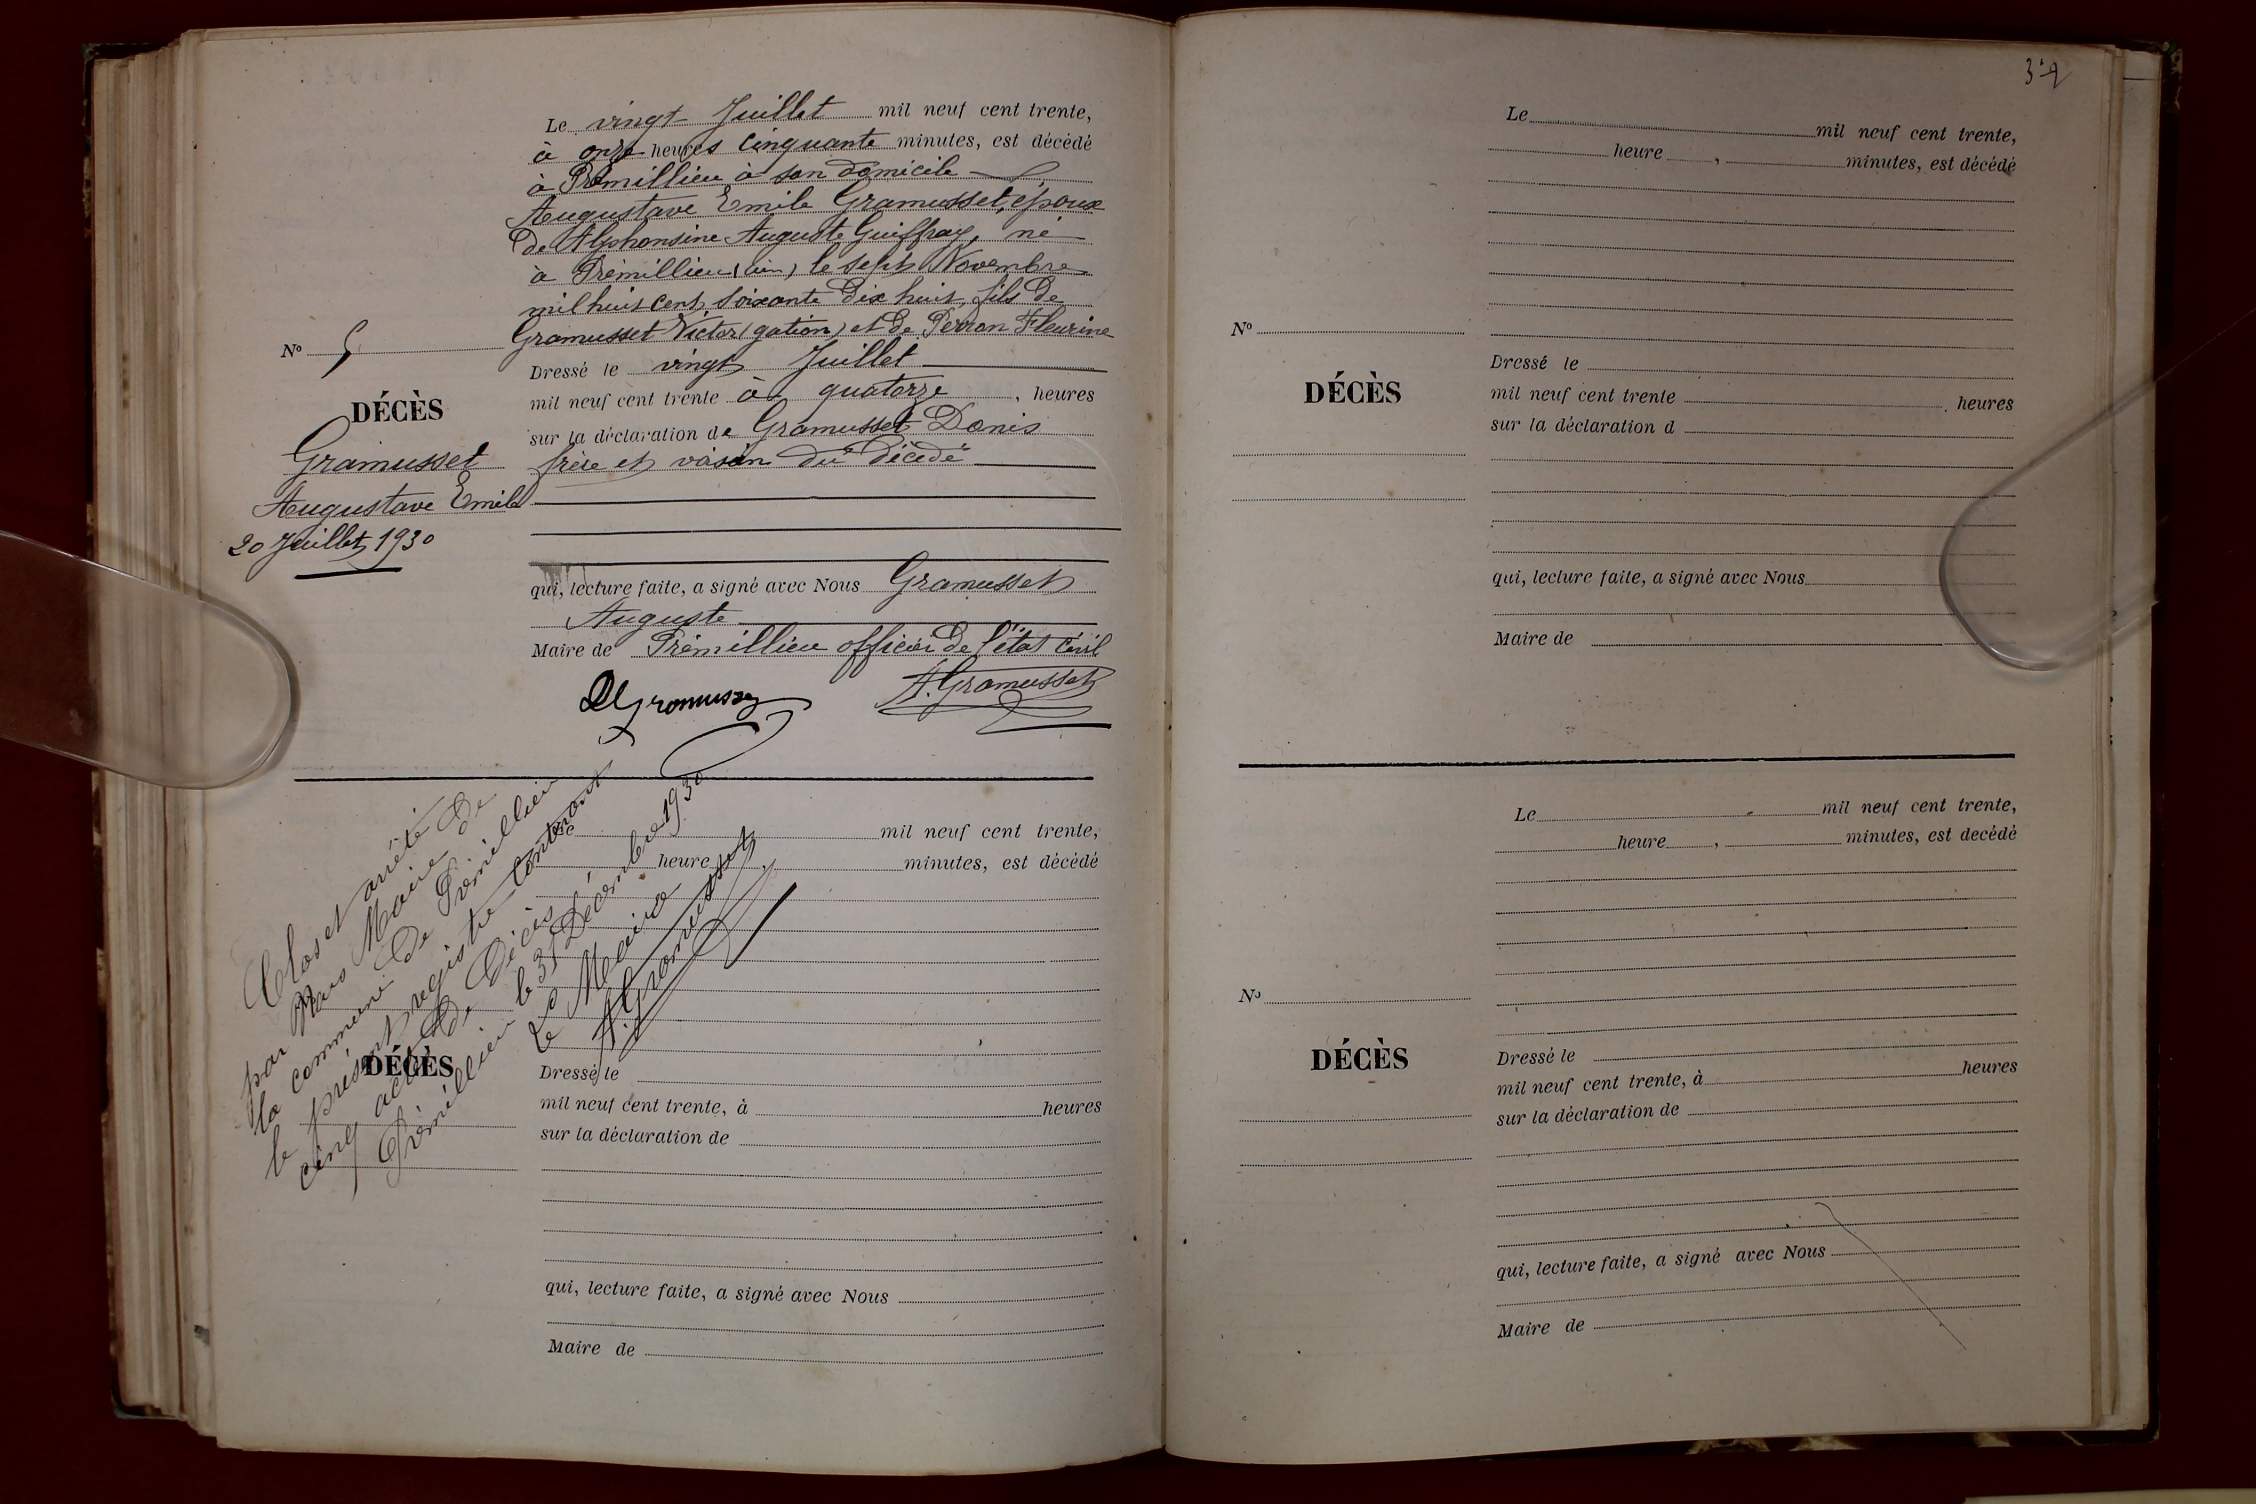 Le vingt Juillet mil neuf cent trente,
à onze heures cinquante minutes, est décédé
à Prémillieu à son domicile
Augustave Emile Gramusset, époux
de Alphonsine Auguste Guiffray, né
à Prémillieu (ain) le sept Novembre
mil huit cent soixante dix huit, fils de
Gramusset Victor (gation) et de Perron Fleurine
Dressé le vingt Juillet
mil neuf cent trente à quatorze, heures
sur la déclaration de Gramusset Denis
frère et voisin du décédé
qui, lecture faite, a signé avec Nous Gramusset
Auguste
Maire de Prémillieu officier de l'état civil
DGramusset
A. Gramusset
No 5
DÉCÈS
Gramusset
Augustave Emile
20 Juillet 1930
Clos et arrêté
par Nous Maire de
la commune de Prémillieu
le présent registre contenant
cinq actes de Décès
Prémillieu le 31 Décembre 1930
Le Maire
A. Gramusset
Le mil neuf cent trente,
heure, minutes, est décédé
DÉCÈS
Dressé le
mil neuf cent trente, à heures
sur la déclaration de
qui, lecture faite, a signé avec Nous
Maire de
Le mil neuf cent trente,
heure, minutes, est décédé
No
DÉCÈS
Dressé le
mil neuf cent trente heures
sur la déclaration d
qui, lecture faite, a signé avec Nous
Maire de
Le mil neuf cent trente,
heure, minutes, est decédé
No
DÉCÈS
Dressé le
mil neuf cent trente, à heures
sur la déclaration de
qui, lecture faite, a signé avec Nous
Maire de